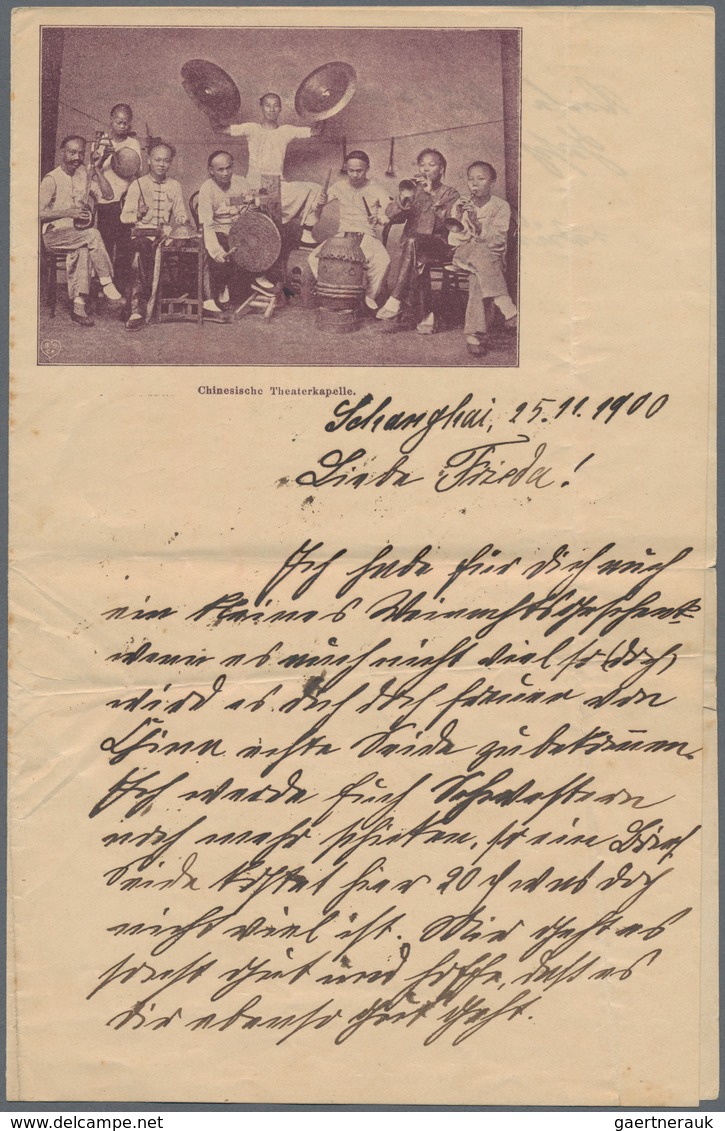 Chinesische Theaterkapelle.
Schanghai, 25.11.1900
Liebe Frieda!
Ich habe für Dich auch
ein kleines Weinachtsgeschenk
wenn es auch nicht viel so doch
wird es dich doch freuen von
China echte Seide zu bekommen.
Ich werde Euch Schwestern
noch mehr schicken, so ein
Seide kostet hier 20 was doch
nicht viel ist. Mir geht es
sonst gut und hoffe, daß es
dir ebenso gut geht.
gaertnerauk